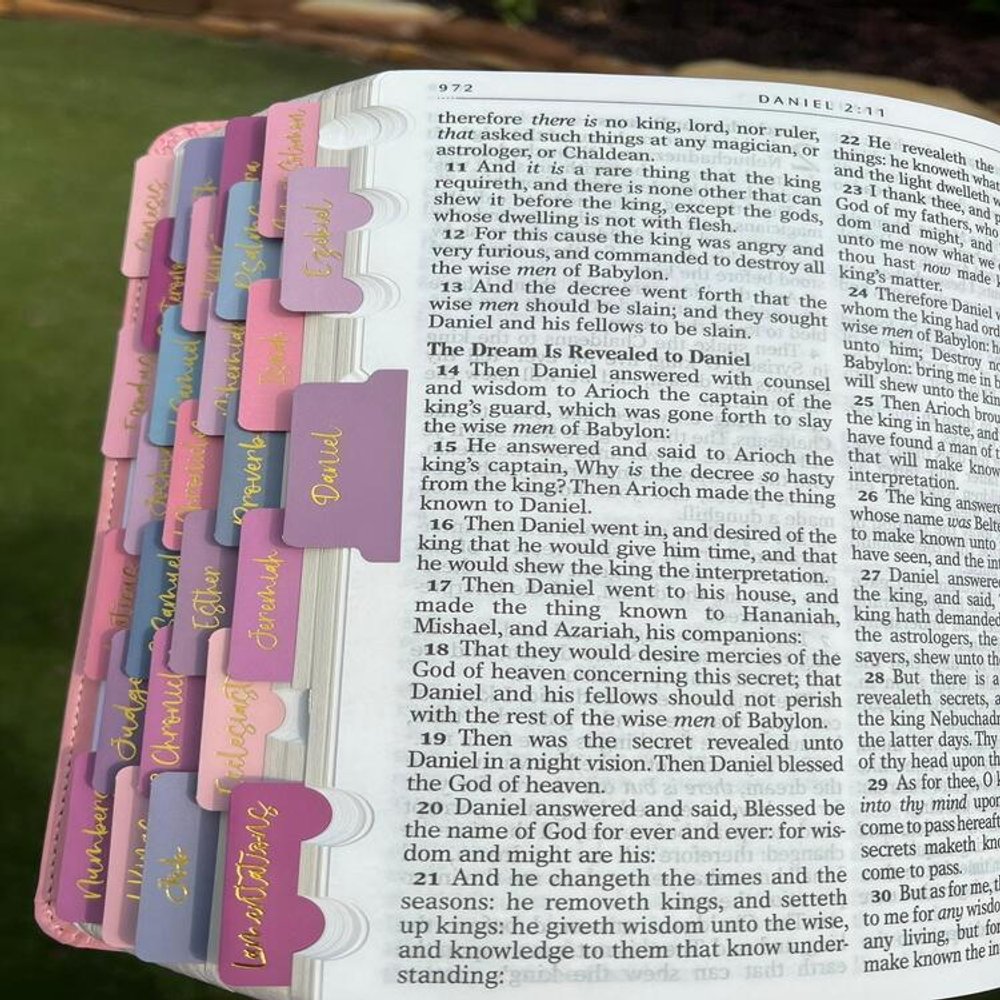 972
DANIEL 2:11
therefore there is no king, lord, nor ruler,
that asked such things at any magician, or
astrologer, or Chaldean.
11 And it is a rare thing that the king
requireth, and there is none other that can
shew it before the king, except the gods,
whose dwelling is not with flesh.
12 For this cause the king was angry and
very furious, and commanded to destroy all
the wise men of Babylon.
13 And the decree went forth that the
wise men should be slain; and they sought
Daniel and his fellows to be slain.
The Dream Is Revealed to Daniel
14 Then Daniel answered with counsel
and wisdom to Arioch the captain of the
king's guard, which was gone forth to slay
the wise men of Babylon:
15 He answered and said to Arioch the
king's captain, Why is the decree so hasty
from the king? Then Arioch made the thing
known to Daniel.
16 Then Daniel went in, and desired of the
king that he would give him time, and that
he would shew the king the interpretation.
17 Then Daniel went to his house, and
made the thing known to Hananiah,
Mishael, and Azariah, his companions:
18 That they would desire mercies of the
God of heaven concerning this secret; that
Daniel and his fellows should not perish
with the rest of the wise men of Babylon.
19 Then was the secret revealed unto
Daniel in a night vision. Then Daniel blessed
the God of heaven.
20 Daniel answered and said, Blessed be
the name of God for ever and ever: for wis-
dom and might are his:
21 And he changeth the times and the
seasons: he removeth kings, and setteth
up kings: he giveth wisdom unto the wise,
and knowledge to them that know under-
standing:
22 He revealeth the
things: he knoweth what
and the light dwelleth
23 I thank thee, and
God of my fathers, who
dom and might, and
unto me now what we
thou hast now made
king's matter.
24 Therefore Daniel
whom the king had ord
wise men of Babylon: he
unto him; Destroy no
Babylon: bring me in b
will shew unto the kin
25 Then Arioch brou
the king in haste, and
have found a man of t
that will make know
interpretation.
26 The king answere
whose name was Belte
to make known unto
have seen, and the int
27 Daniel answered
the king, and said,
king hath demanded
the astrologers, the
sayers, shew unto th
28 But there is a
revealeth secrets, a
the king Nebuchadn
the latter days. Thy
of thy head upon th
29 As for thee, O k
into thy mind upon
come to pass hereaft
secrets maketh kno
come to pass.
30 But as for me, th
to me for any wisdo
any living, but for
make known the in
Genesis
Exodus
Numbers
Judge
Samuel
Samuel
Chronicl
Esther
Job
Psalms
Proverb
Ecclesiast
Isaiah
Jeremiah
Lamentations
Ezekiel
Daniel